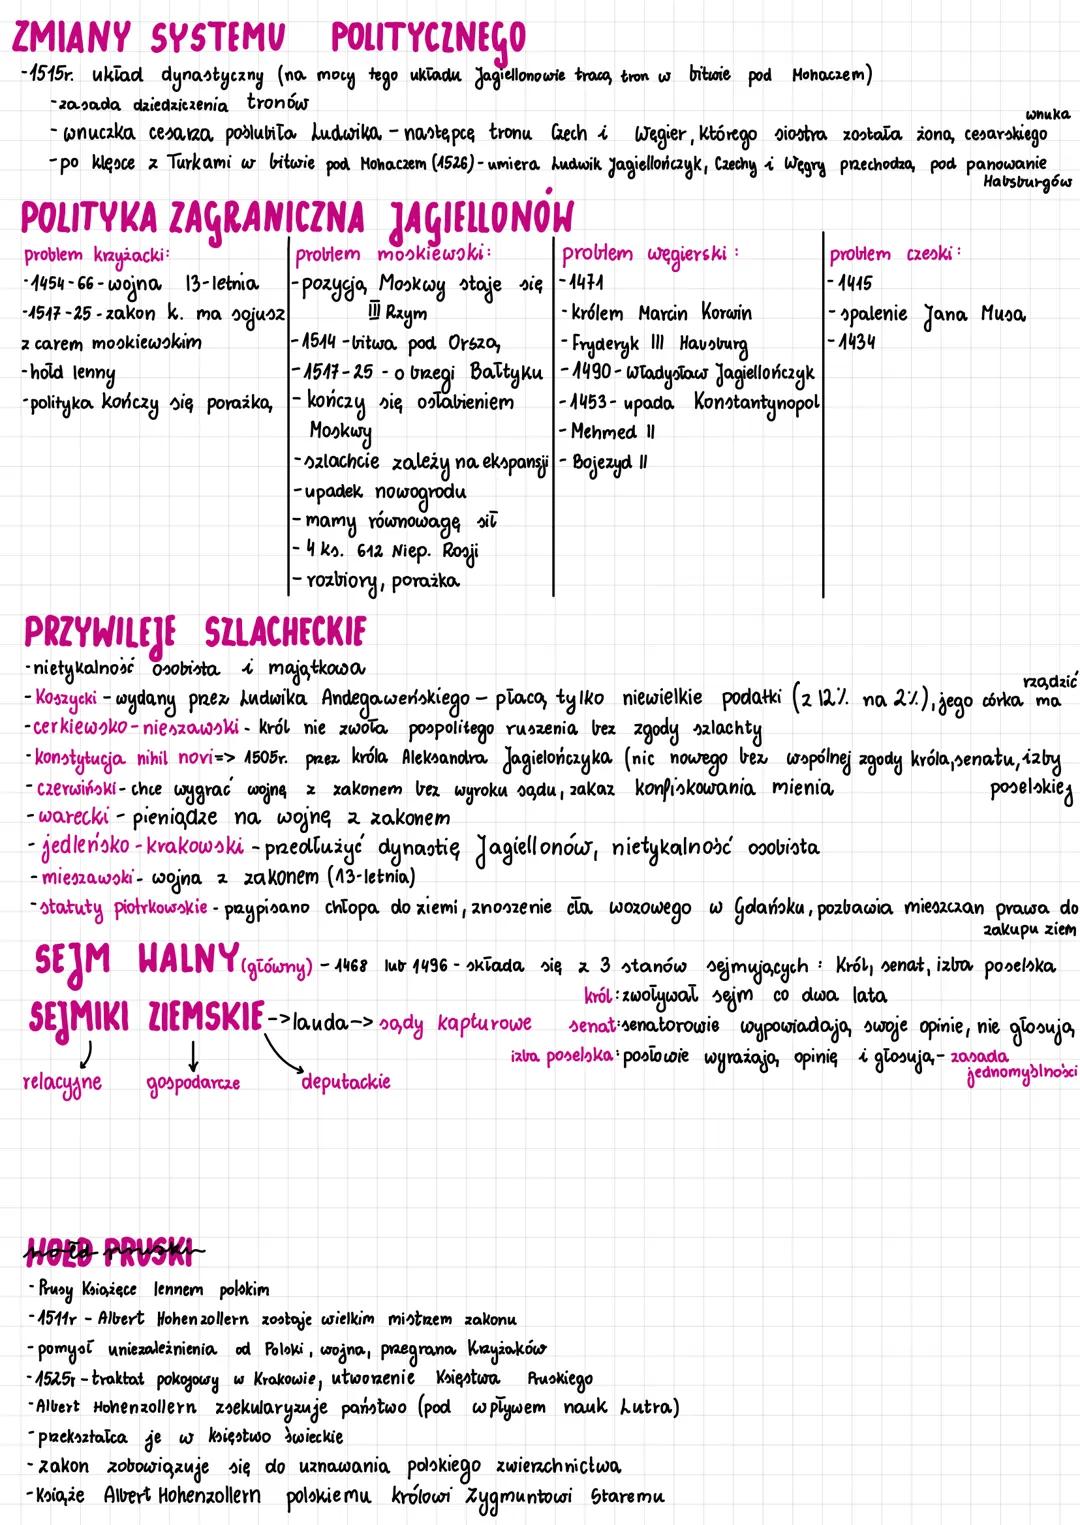 ZMIANY SYSTEMU POLITYCZNEGO
-1515r. układ dynastyczny (na mocy tego układu Jagiellonowie tracą tron w bitwie pod Mohaczem)
-zasada dziedziczenia tronów
- wnuczka cesarza poślubiła Ludwika - następcę tronu Czech i Węgier, którego siostra została żoną cesarskiego wnuka
-po klęsce z Turkami w bitwie pod Mohaczem (1526)-umiera Ludwik Jagiellończyk, Czechy i Węgry przechodzą pod panowanie Habsburgów
POLITYKA ZAGRANICZNA JAGIELLONÓW
problem krzyżacki:
-1454-66-wojna 13-letnia
-1517-25-zakon k. ma sojusz
z carem moskiewskim
-hołd lenny
-polityka kończy się porażką
problem moskiewski:
-pozycją Moskwy staje się
III Rzym
-1514-bitwa pod Orszą
-1517-25 - o brzegi Bałtyku
- kończy się osłabieniem
Moskwy
-szlachcie zależy na ekspansji
-upadek nowogrodu
-mamy równowagę sił
- 4 ks. 612 Niep. Rosji
- rozbiory, porażka
problem węgierski:
-1471
-królem Marcin Korwin
-Fryderyk III Hausburg
-1490-Władysław Jagiellończyk
-1453- upada Konstantynopol
- Mehmed II
- Bojezyd II
problem czeski:
-1415
- spalenie Jana Musa
-1434
PRZYWILEJE SZLACHECKIE
-nietykalność osobista i majątkowa
- Koszycki - wydany przez Ludwika Andegaweńskiego - płacą tylko niewielkie podatki (z 12% na 2%), jego córka ma rządzić
-cerkiewsko-nieszawski- król nie zwoła pospolitego ruszenia bez zgody szlachty
-konstytucja nihil novi=> 1505r. przez króla Aleksandra Jagielończyka (nic nowego bez wspólnej zgody króla,senatu,izby poselskiej
- czerwiński-chce wygrać wojnę z zakonem bez wyroku sądu, zakaz konfiskowania mienia
-warecki - pieniądze na wojnę z zakonem
- jedleńsko-krakowski - przedłużyć dynastię Jagiellonów, nietykalność osobista
-mieszawski- wojna z zakonem (13-letnia)
-statuty piotrkowskie - przypisano chłopa do ziemi, znoszenie cła wozowego w Gdańsku, pozbawia mieszczan prawa do zakupu ziem
SEJM WALNY (główny) - 1468 lub 1496 - składa się z 3 stanów sejmujących: Król, senat, izba poselska
król: zwoływał sejm co dwa lata
SEJMIKI ZIEMSKIE->lauda-> sądy kapturowe
senat:senatorowie wypowiadają swoje opinie, nie głosują
izba poselska: posłowie wyrażają opinię i głosują- zasada jednomyślności
relacyjne gospodarcze deputackie
HOŁD PRUSKI
- Prusy Książęce lennem polskim
-1511r - Albert Hohenzollern zostaje wielkim mistrzem zakonu
-pomysł uniezależnienia od Polski, wojna, przegrana Krzyżaków
-1525r-traktat pokojowy w Krakowie, utworzenie Księstwa Pruskiego
-Albert Hohenzollern zsekularyzuje państwo (pod wpływem nauk Lutra)
-przekształca je w księstwo świeckie
-zakon zobowiązuje się do uznawania polskiego zwierzchnictwa
-Książe Albert Hohenzollern polskiemu królowi Zygmuntowi Staremu